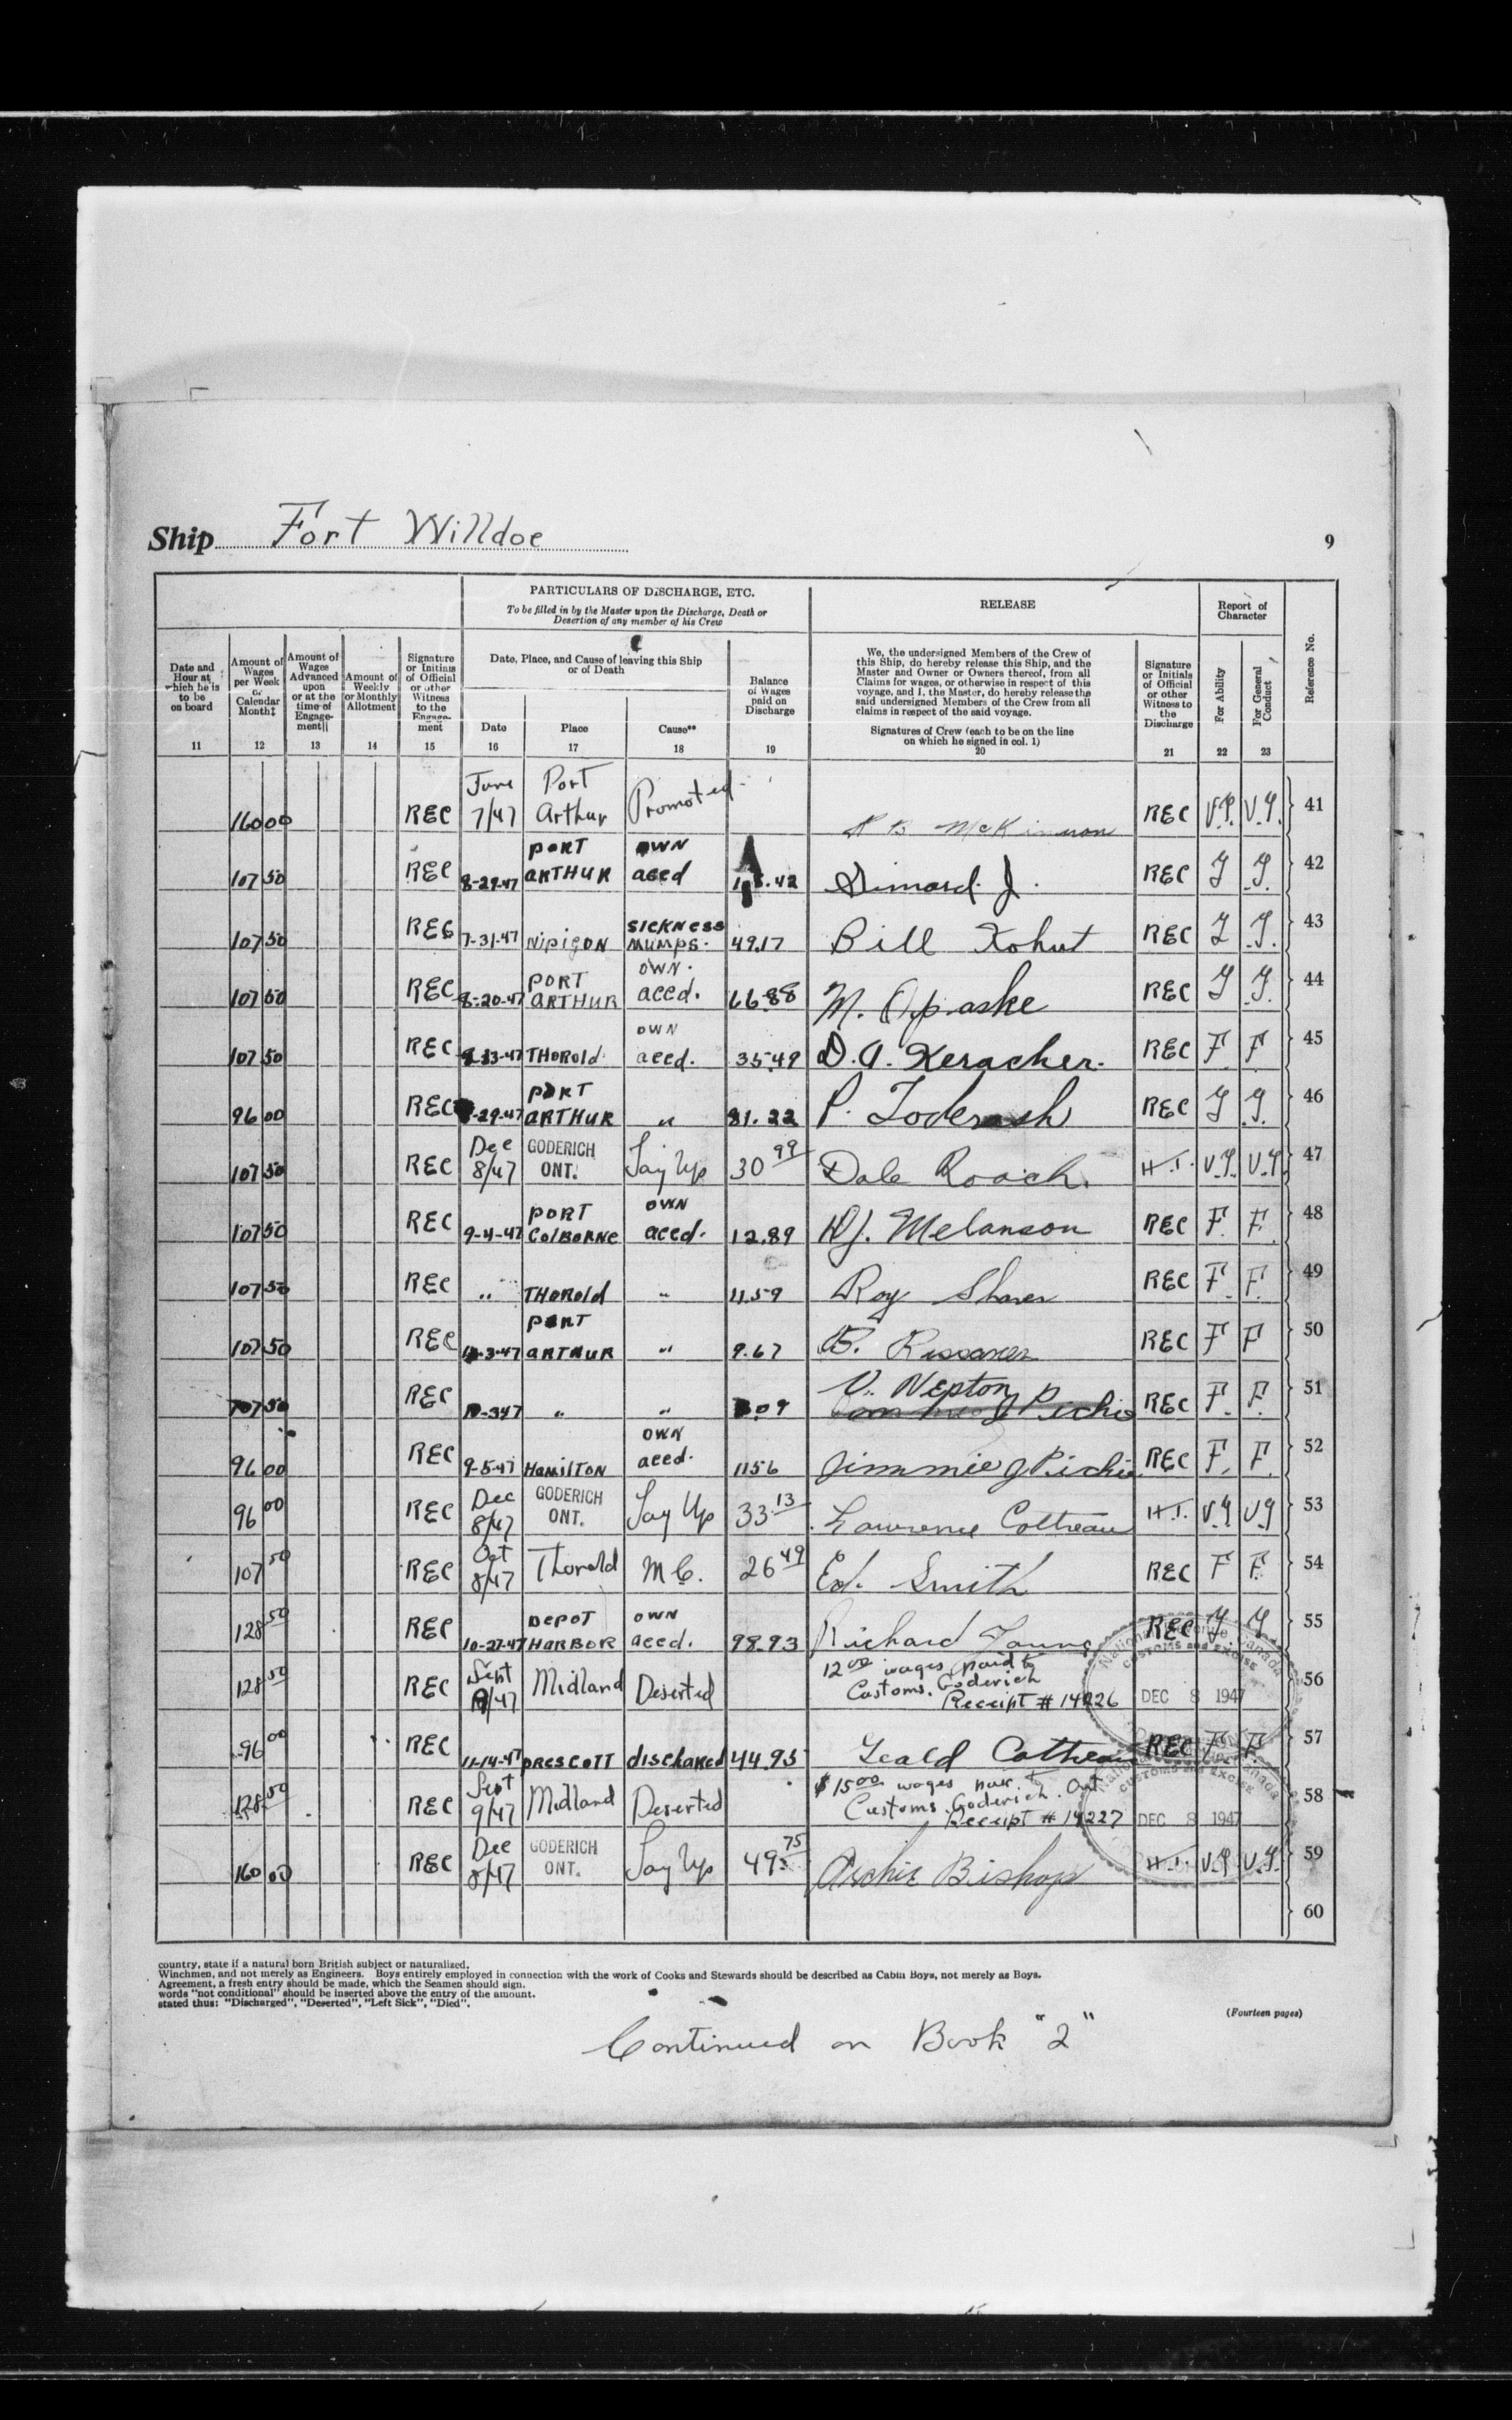 Ship Fort Willdoe
9
PARTICULARS OF DISCHARGE, ETC.
To be filled in by the Master upon the Discharge, Death or
Desertion of any member of his Crew
RELEASE
Report of
Character
Reference No.
Date and
Hour at
which he is
to be
on board
Amount of
Wages
per Week
or
Calendar
Month‡
Amount of
Wages
Advanced
upon
or at the
time of
Engage-
ment||
Amount of
Weekly
or Monthly
Allotment
Signature
or Initials
of Official
or other
Witness
to the
Engage-
ment
Date, Place, and Cause of leaving this Ship
or of Death
Date
Place
Cause**
Balance
of Wages
paid on
Discharge
We, the undersigned Members of the Crew of
this Ship, do hereby release this Ship, and the
Master and Owner or Owners thereof, from all
Claims for wages, or otherwise in respect of this
voyage, and I, the Master, do hereby release the
said undersigned Members of the Crew from all
claims in respect of the said voyage.
Signatures of Crew (each to be on the line
on which he signed in col. 1)
Signature
or Initials
of Official
or other
Witness to
the
Discharge
For Ability
For General
Conduct
11 12 13 14 15 16 17 18 19 20 21 22 23
160 00 REC June 7/47 Port Arthur Promoted McKinnon REC V.G. V.G. 41
107 50 REC 8-29-47 PORT ARTHUR OWN aced .42 Simard J. REC G G. 42
107 50 REC 7-31-47 NIPIGON SICKNESS MUMPS. 49.17 Bill Kohut REC G G. 43
107 50 REC 8-20-47 PORT ARTHUR OWN. aced. 66.88 M. Opaske REC G G. 44
107 50 REC THOROLD OWN aced. 35.49 D.A. Keracher. REC F F 45
96 00 REC -29-47 PORT ARTHUR " 81.22 P. Toderash REC G G. 46
107 50 REC Dec 8/47 GODERICH ONT. Lay Up 30 99 Dale Roach. H.T. V.G. V.G. 47
107 50 REC 9-4-47 PORT COLBORNE OWN aced. 12.89 Melanson REC F. F. 48
107 50 REC " THOROLD " 11.59 Roy REC F. F. 49
107 50 REC 10-3-47 PORT ARTHUR " 9.67 B. REC F F 50
107 50 REC 10-3-47 " " 09 V. Nepton REC F. F. 51
96 00 REC 9-5-47 HAMILTON OWN aced. 11.56 Jimmie J Pichie REC F. F. 52
96 00 REC Dec 8/47 GODERICH ONT. Lay Up 33.13 Lawrence Coltreau H.T. V.G V.G 53
107 50 REC Oct 8/47 Thorold M.C. 26 49 Ed. Smith REC F F. 54
128 50 REC 10-27-47 DEPOT HARBOR OWN aced. 98.93 Richard Young REC G. G 55
128 50 REC Sept /47 Midland Deserted 12 00 wages paid to
Customs. Goderich
Receipt # 14226 DEC 8 1947 56
96 00 REC 11-14-47 PRESCOTT discharged 44.95 Coltreau REC F F. 57
128 50 REC Sept 9/47 Midland Deserted $15 00 wages
Customs. Goderich. Ont
Receipt # 14227 DEC 8 1947 58
160 00 REC Dec 8/47 GODERICH ONT. Lay Up 49.75 Archie Bishop H.T. V.G V.G. 59
60
National Revenue Canada
CUSTOMS AND EXCISE
country, state if a natural born British subject or naturalized.
Winchmen, and not merely as Engineers. Boys entirely employed in connection with the work of Cooks and Stewards should be described as Cabin Boys, not merely as Boys.
Agreement, a fresh entry should be made, which the Seamen should sign.
words "not conditional" should be inserted above the entry of the amount.
stated thus: "Discharged", "Deserted", "Left Sick", "Died".
(Fourteen pages)
Continued on Book "2"